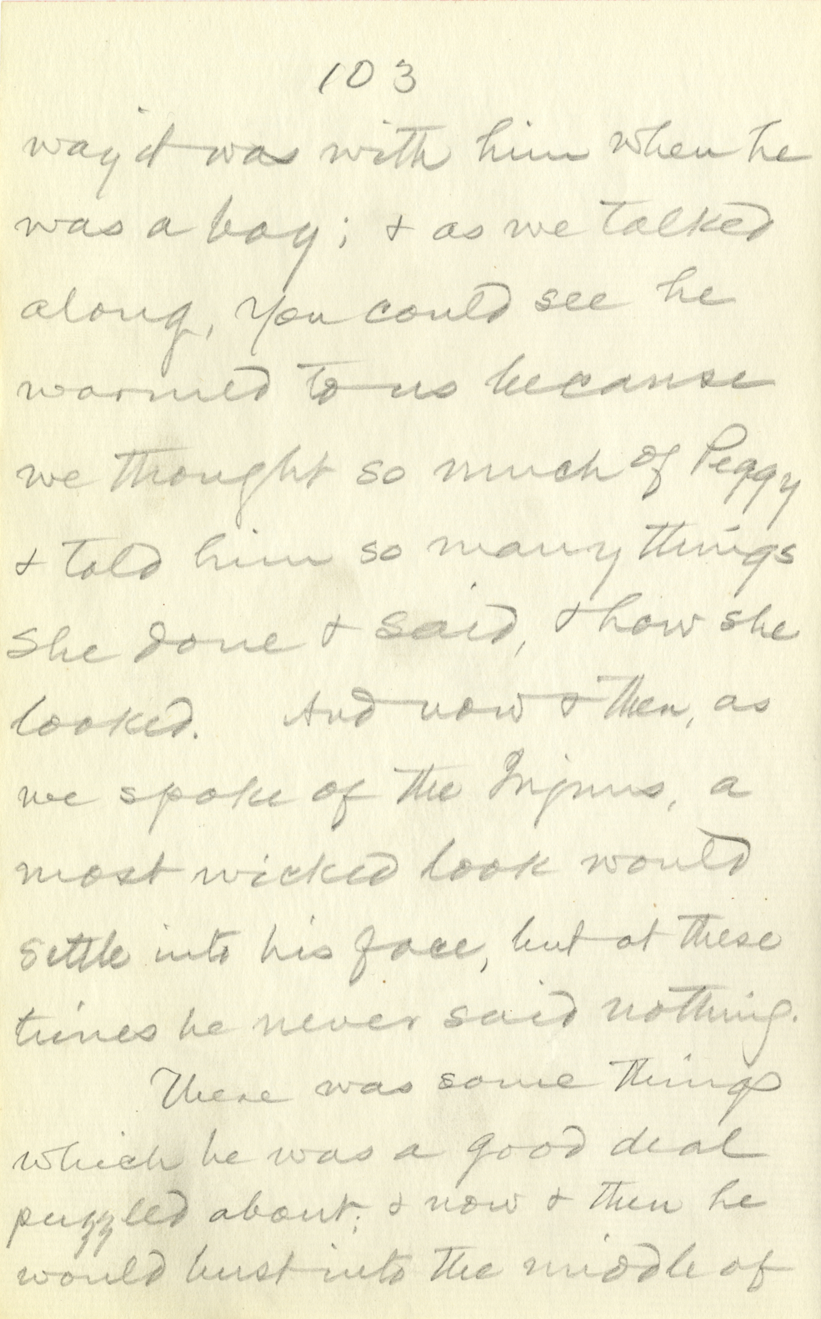 103
way it was with him when he
was a boy; & as we talked
along, you could see he
warmed to us because
we thought so much of Peggy
& told him so many things
she done & said, & how she
looked. And now & then, as
we spoke of the Injuns, a
most wicked look would
settle into his face, but at these
times he never said nothing.
There was some things
which he was a good deal
puzzled about; & now & then he
would bust into the middle of